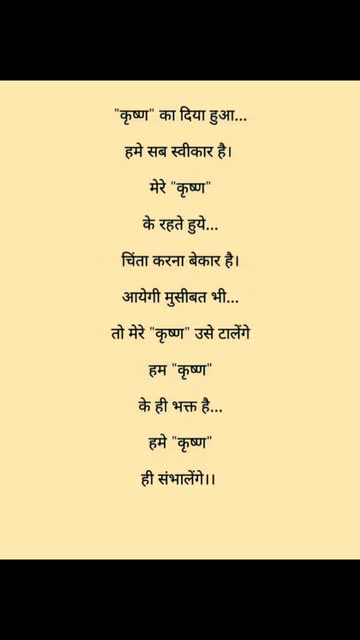 "कृष्ण" का दिया हुआ...
हमे सब स्वीकार है।
मेरे "कृष्ण"
के रहते हुये...
चिंता करना बेकार है।
आयेगी मुसीबत भी...
तो मेरे "कृष्ण" उसे टालेंगे
हम "कृष्ण"
के ही भक्त है...
हमे "कृष्ण"
ही संभालेंगे।।